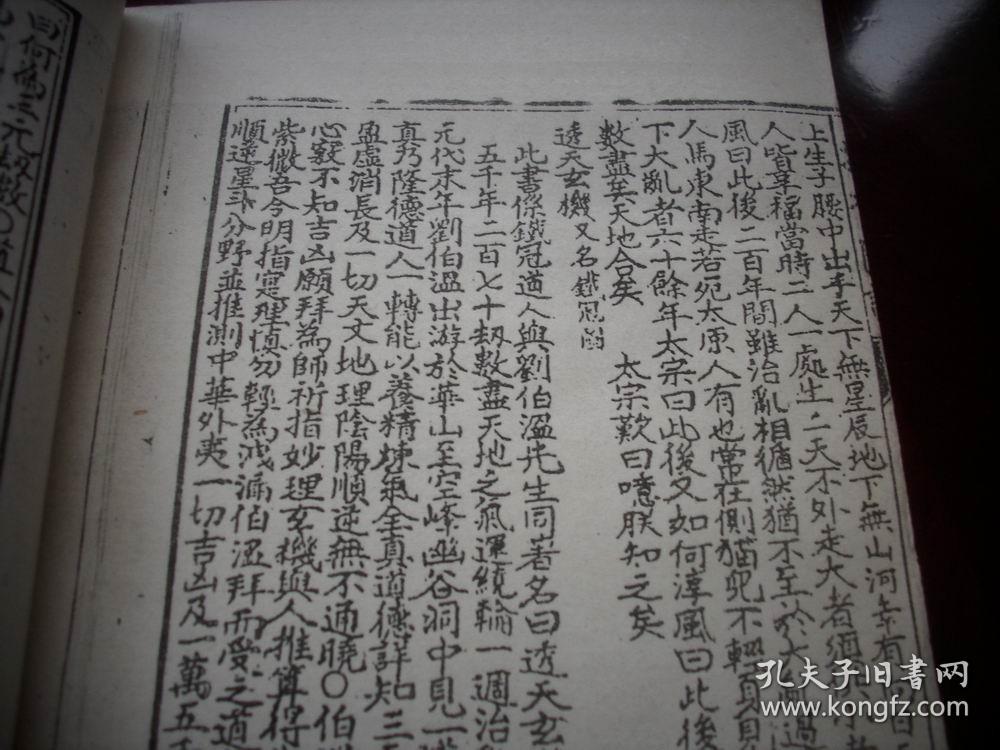 上生子腰中出手天下無星辰地下無山河
人皆草稲當時二人一處生二天不外走大者
風曰此後二百年間雖治亂相循然猶不至於大
人馬東南走若犯太原人有也常在側猶兕不
下大亂者六十餘年太宗曰此後又如何淳風曰此後
數盡矣天地合矣 太宗歎曰噫朕知之矣
透天玄機又名鐵冠圖
此書係鐵冠道人與劉伯溫先生同著名曰透天玄
五千年二百七十劫數盡天地之氣運繞輪一週治
元代末年劉伯溫出游於華山至空峰幽谷洞中見一
真乃隆德道人一轉能以養精煉氣全真道德詳知三
盈虛消長及一切天文地理陰陽順逆無不通曉〇伯
心竅不知吉凶願拜為師祈指妙理玄機與人推算得
紫微吾今明指寔理慎勿輕為洩漏伯溫拜而受之道
順逆星斗分野並推測中華外夷一切吉凶及一萬五
曰何為三元
孔夫子旧书网
www.kongfz.com